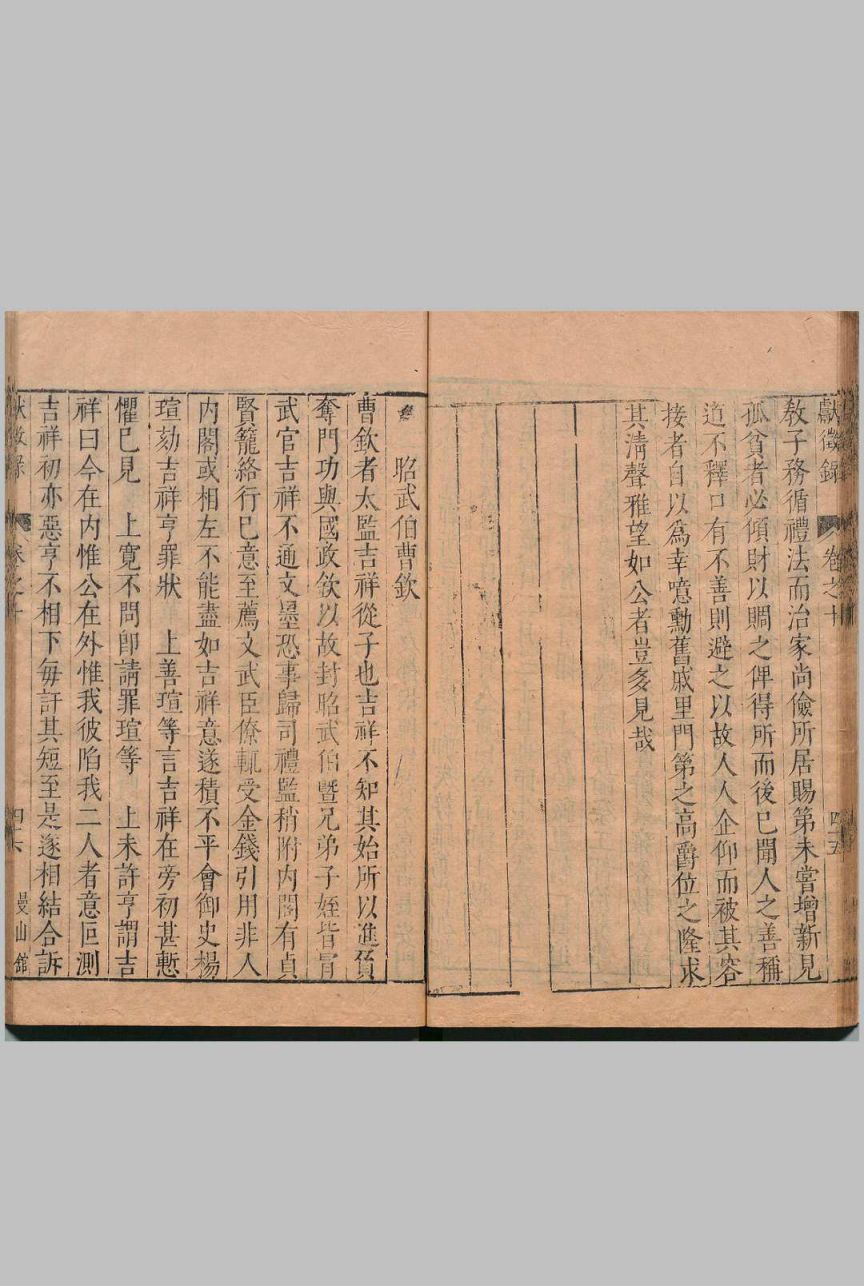 獻徵錄 卷之十 四十五
教子務循禮法而治家尚儉所居賜第未嘗增新見
孤貧者必傾財以賙之俾得所而後已聞人之善稱
道不釋口有不善則避之以故人人企仰而被其容
接者自以爲幸噫勳舊戚里門第之高爵位之隆求
其淸聲雅望如公者豈多見哉
昭武伯曹欽
曹欽者太監吉祥從子也吉祥不知其始所以進質
奪門功與國政欽以故封昭武伯曁兄弟子姪皆冐
武官吉祥不通文墨恐事歸司禮監稍附內閣有貞
賢籠絡行已意至薦文武臣僚輒受金錢引用非人
內閣或相左不能盡如吉祥意遂積不平會御史楊
瑄劾吉祥亨罪狀 上善瑄等言吉祥在旁初甚慙
懼已見 上寬不問卽請罪瑄等 上未許亨謂吉
祥曰今在内惟公在外惟我彼陷我二人者意叵測
吉祥初亦惡亨不相下每訐其短至是遂相結合訴
獻徵錄 卷之十 四十六 曼山館